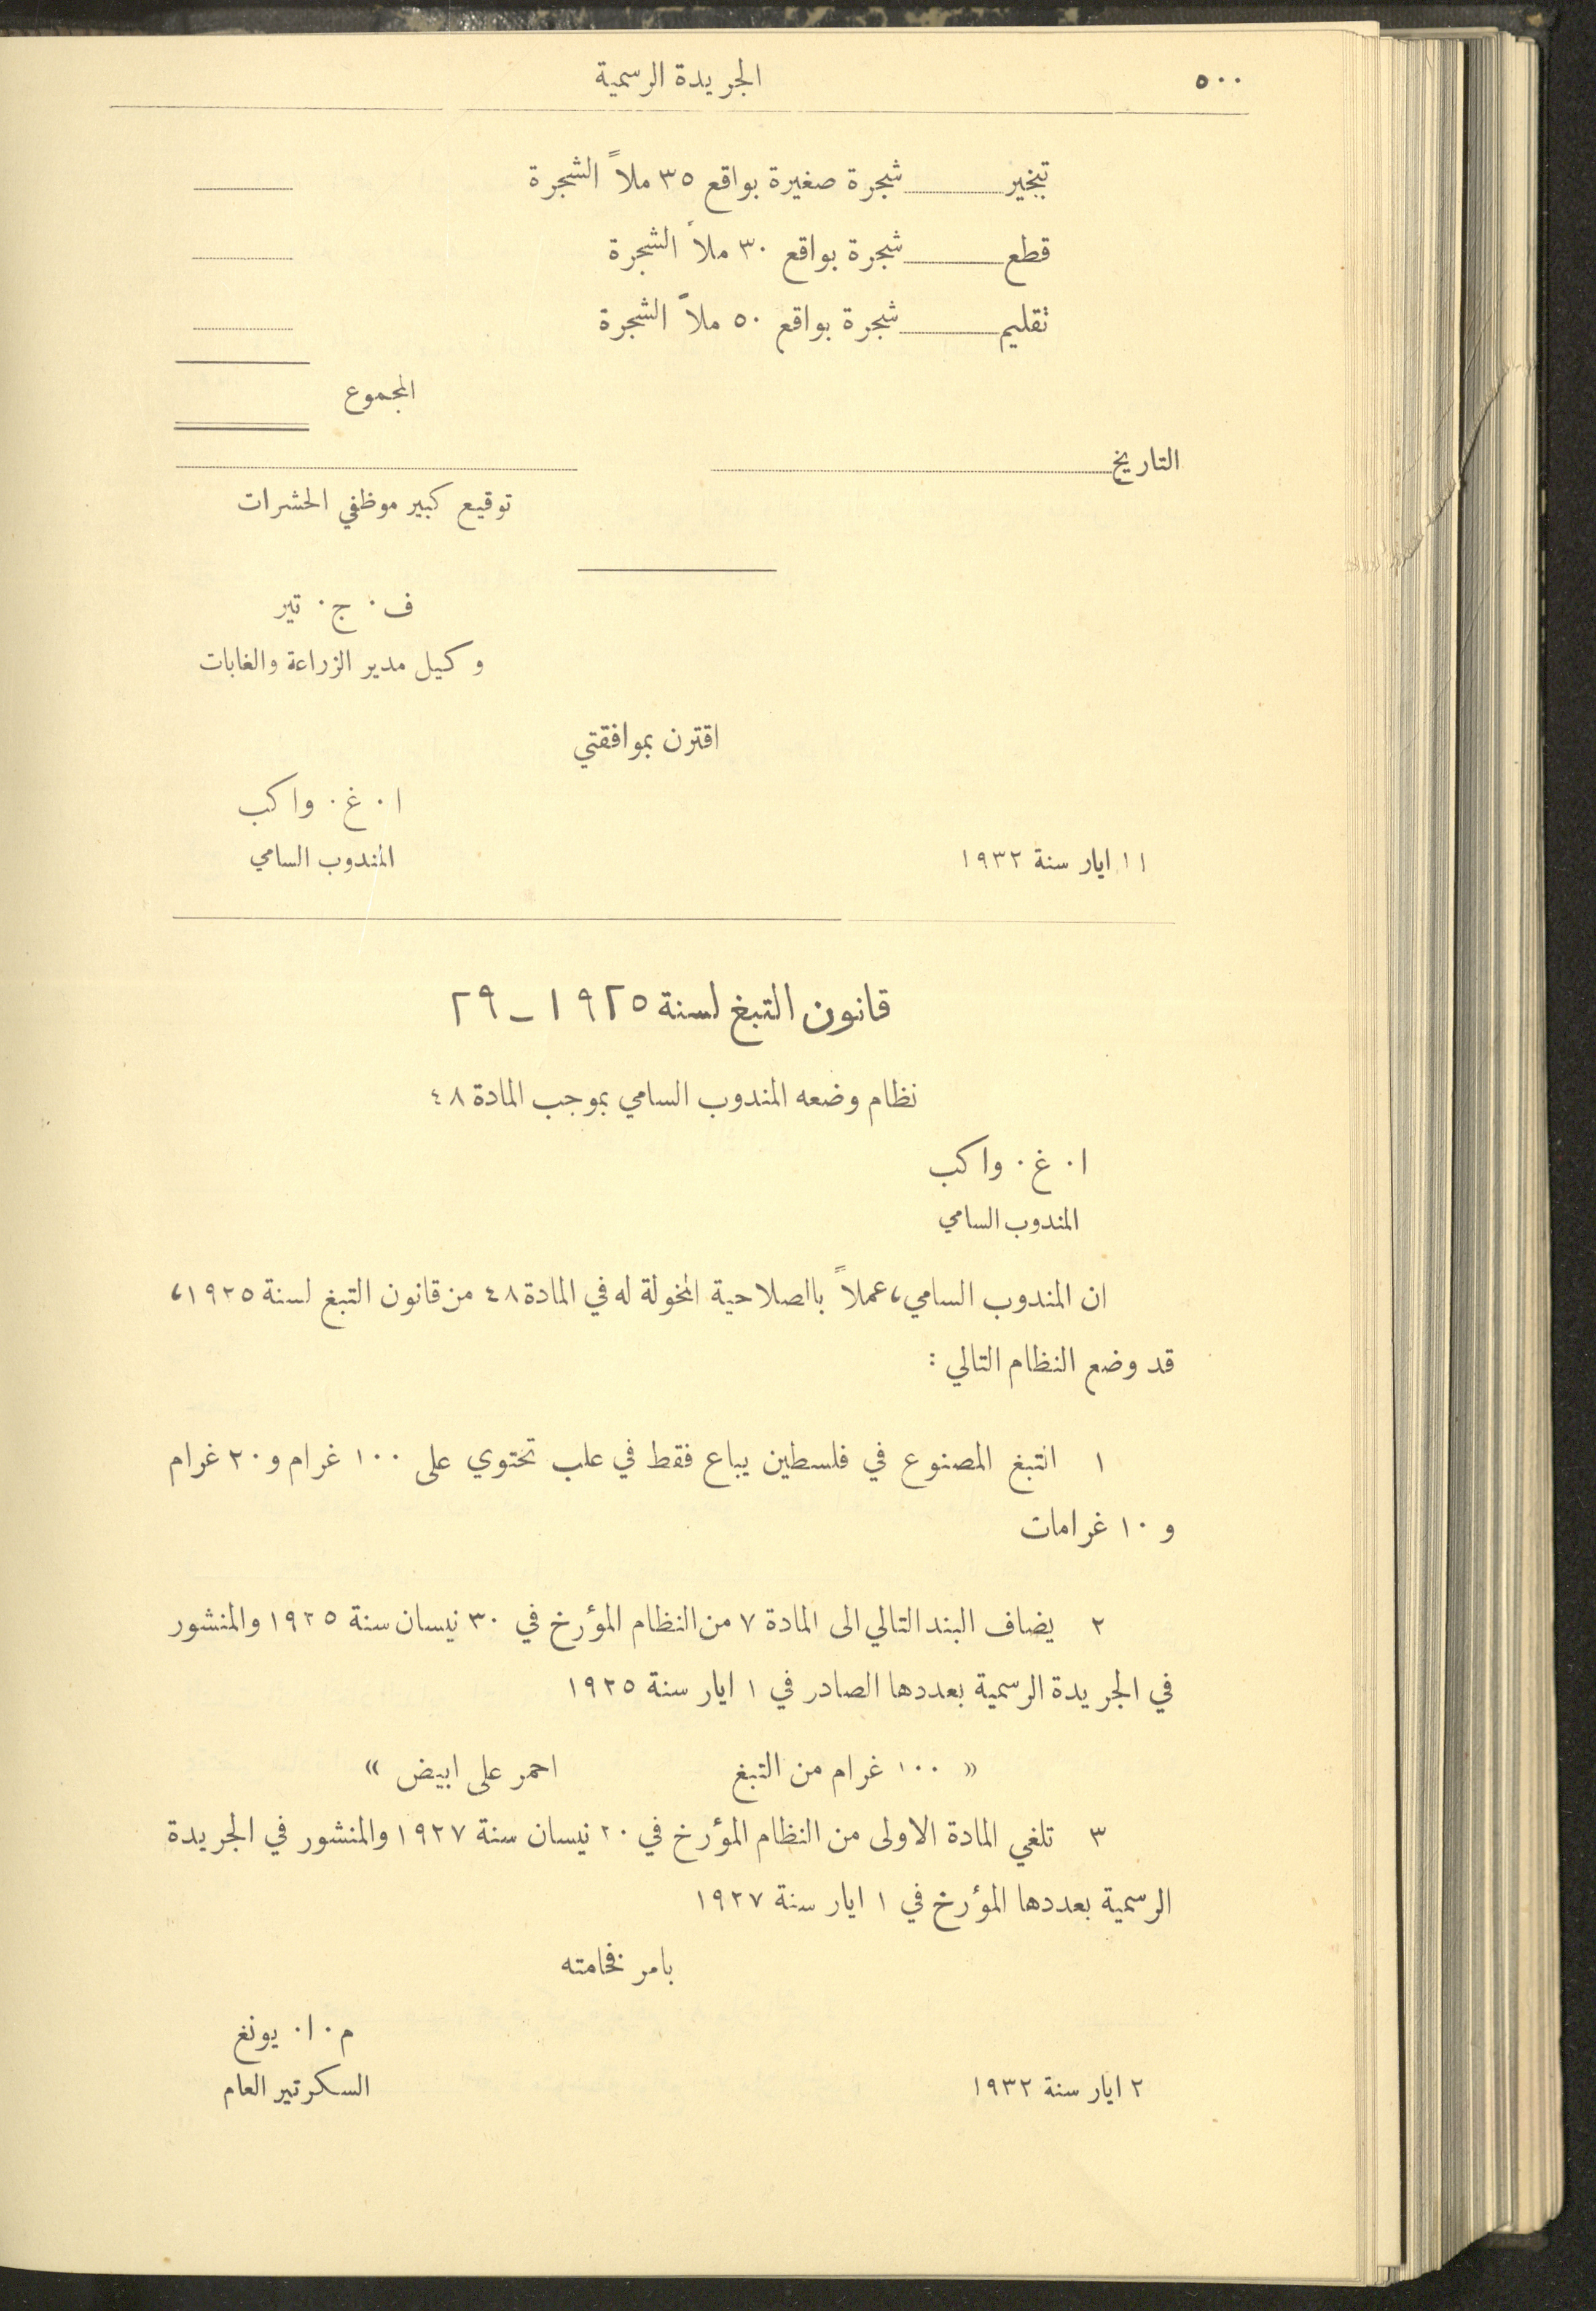 ٥٠٠
الجريدة الرسمية
تبخير شجرة صغيرة بواقع ٣٥ ملاً الشجرة
قطع شجرة بواقع ٣٠ ملاً الشجرة
تقليم شجرة بواقع ٥٠ ملاً الشجرة
المجموع
التاريخ
توقيع كبير موظفي الحشرات
ف · ج · تير
وكيل مدير الزراعة والغابات
اقترن بموافقتي
ا · غ · واكب
١١ ايار سنة ١٩٣٢ المندوب السامي
قانون التبغ لسنة ١٩٢٥ - ٢٩
نظام وضعه المندوب السامي بموجب المادة ٤٨
ا · غ · واكب
المندوب السامي
ان المندوب السامي، عملاً باالصلاحية المخولة له في المادة ٤٨ من قانون التبغ لسنة ١٩٢٥،
قد وضع النظام التالي :
١ التبغ المصنوع في فلسطين يباع فقط في علب تحتوي على ١٠٠ غرام و ٢٠ غرام
و ١٠ غرامات
٢ يضاف البند التالي الى المادة ٧ من النظام المؤرخ في ٣٠ نيسان سنة ١٩٢٥ والمنشور
في الجريدة الرسمية بعددها الصادر في ١ ايار سنة ١٩٢٥
« ١٠٠ غرام من التبغ احمر على ابيض »
٣ تلغي المادة الاولى من النظام المؤرخ في ٢٠ نيسان سنة ١٩٢٧ والمنشور في الجريدة
الرسمية بعددها المؤرخ في ١ ايار سنة ١٩٢٧
بامر فخامته
م · ا · يونغ
٢ ايار سنة ١٩٣٢ السكرتير العام